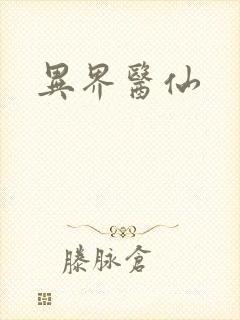 異界醫仙
滕脉倉